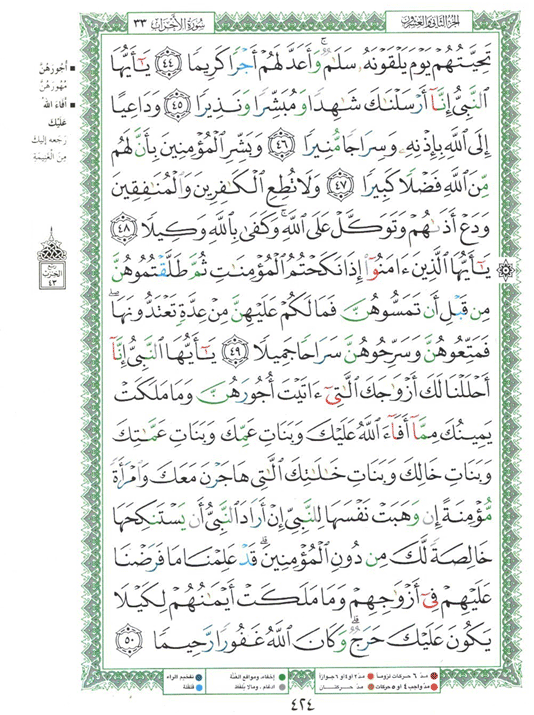 الجزء الثاني والعشرون
سُورَةُ الأَحْزَابِ ٣٣
تَحِيَّتُهُمْ يَوْمَ يَلْقَوْنَهُۥ سَلَٰمٌ وَأَعَدَّ لَهُمْ أَجْرًا كَرِيمًا ٤٤ يَٰٓأَيُّهَا
ٱلنَّبِىُّ إِنَّآ أَرْسَلْنَٰكَ شَٰهِدًا وَمُبَشِّرًا وَنَذِيرًا ٤٥ وَدَاعِيًا
إِلَى ٱللَّهِ بِإِذْنِهِۦ وَسِرَاجًا مُّنِيرًا ٤٦ وَبَشِّرِ ٱلْمُؤْمِنِينَ بِأَنَّ لَهُم
مِّنَ ٱللَّهِ فَضْلًا كَبِيرًا ٤٧ وَلَا تُطِعِ ٱلْكَٰفِرِينَ وَٱلْمُنَٰفِقِينَ
وَدَعْ أَذَىٰهُمْ وَتَوَكَّلْ عَلَى ٱللَّهِ ۚ وَكَفَىٰ بِٱللَّهِ وَكِيلًا ٤٨
يَٰٓأَيُّهَا ٱلَّذِينَ ءَامَنُوٓا۟ إِذَا نَكَحْتُمُ ٱلْمُؤْمِنَٰتِ ثُمَّ طَلَّقْتُمُوهُنَّ
مِن قَبْلِ أَن تَمَسُّوهُنَّ فَمَا لَكُمْ عَلَيْهِنَّ مِنْ عِدَّةٍ تَعْتَدُّونَهَا ۖ
فَمَتِّعُوهُنَّ وَسَرِّحُوهُنَّ سَرَاحًا جَمِيلًا ٤٩ يَٰٓأَيُّهَا ٱلنَّبِىُّ إِنَّآ
أَحْلَلْنَا لَكَ أَزْوَٰجَكَ ٱلَّٰتِىٓ ءَاتَيْتَ أُجُورَهُنَّ وَمَا مَلَكَتْ
يَمِينُكَ مِمَّآ أَفَآءَ ٱللَّهُ عَلَيْكَ وَبَنَاتِ عَمِّكَ وَبَنَاتِ عَمَّٰتِكَ
وَبَنَاتِ خَالِكَ وَبَنَاتِ خَٰلَٰتِكَ ٱلَّٰتِى هَاجَرْنَ مَعَكَ وَٱمْرَأَةً
مُّؤْمِنَةً إِن وَهَبَتْ نَفْسَهَا لِلنَّبِىِّ إِنْ أَرَادَ ٱلنَّبِىُّ أَن يَسْتَنكِحَهَا
خَالِصَةً لَّكَ مِن دُونِ ٱلْمُؤْمِنِينَ ۗ قَدْ عَلِمْنَا مَا فَرَضْنَا
عَلَيْهِمْ فِىٓ أَزْوَٰجِهِمْ وَمَا مَلَكَتْ أَيْمَٰنُهُمْ لِكَيْلَا
يَكُونَ عَلَيْكَ حَرَجٌ ۗ وَكَانَ ٱللَّهُ غَفُورًا رَّحِيمًا ٥٠
أُجُورَهُنَّ
مُهُورَهُنَّ
أَفَاءَ اللهُ
عَلَيْكَ
رَجَعَه إليك
مِنَ الْغَنِيمَةِ
ربع
الحزب
٤٣
مدّ ٦ حركات لزوماً
مدّ ٢ أو ٤ أو ٦ جوازاً
إخفاء، ومواقع الغُنَّة
تفخيم الراء
مدّ واجب ٤ أو ٥ حركات
مدّ حركتان
إدغام، وما لا يُلفَظ
قلقلة
٤٢٤